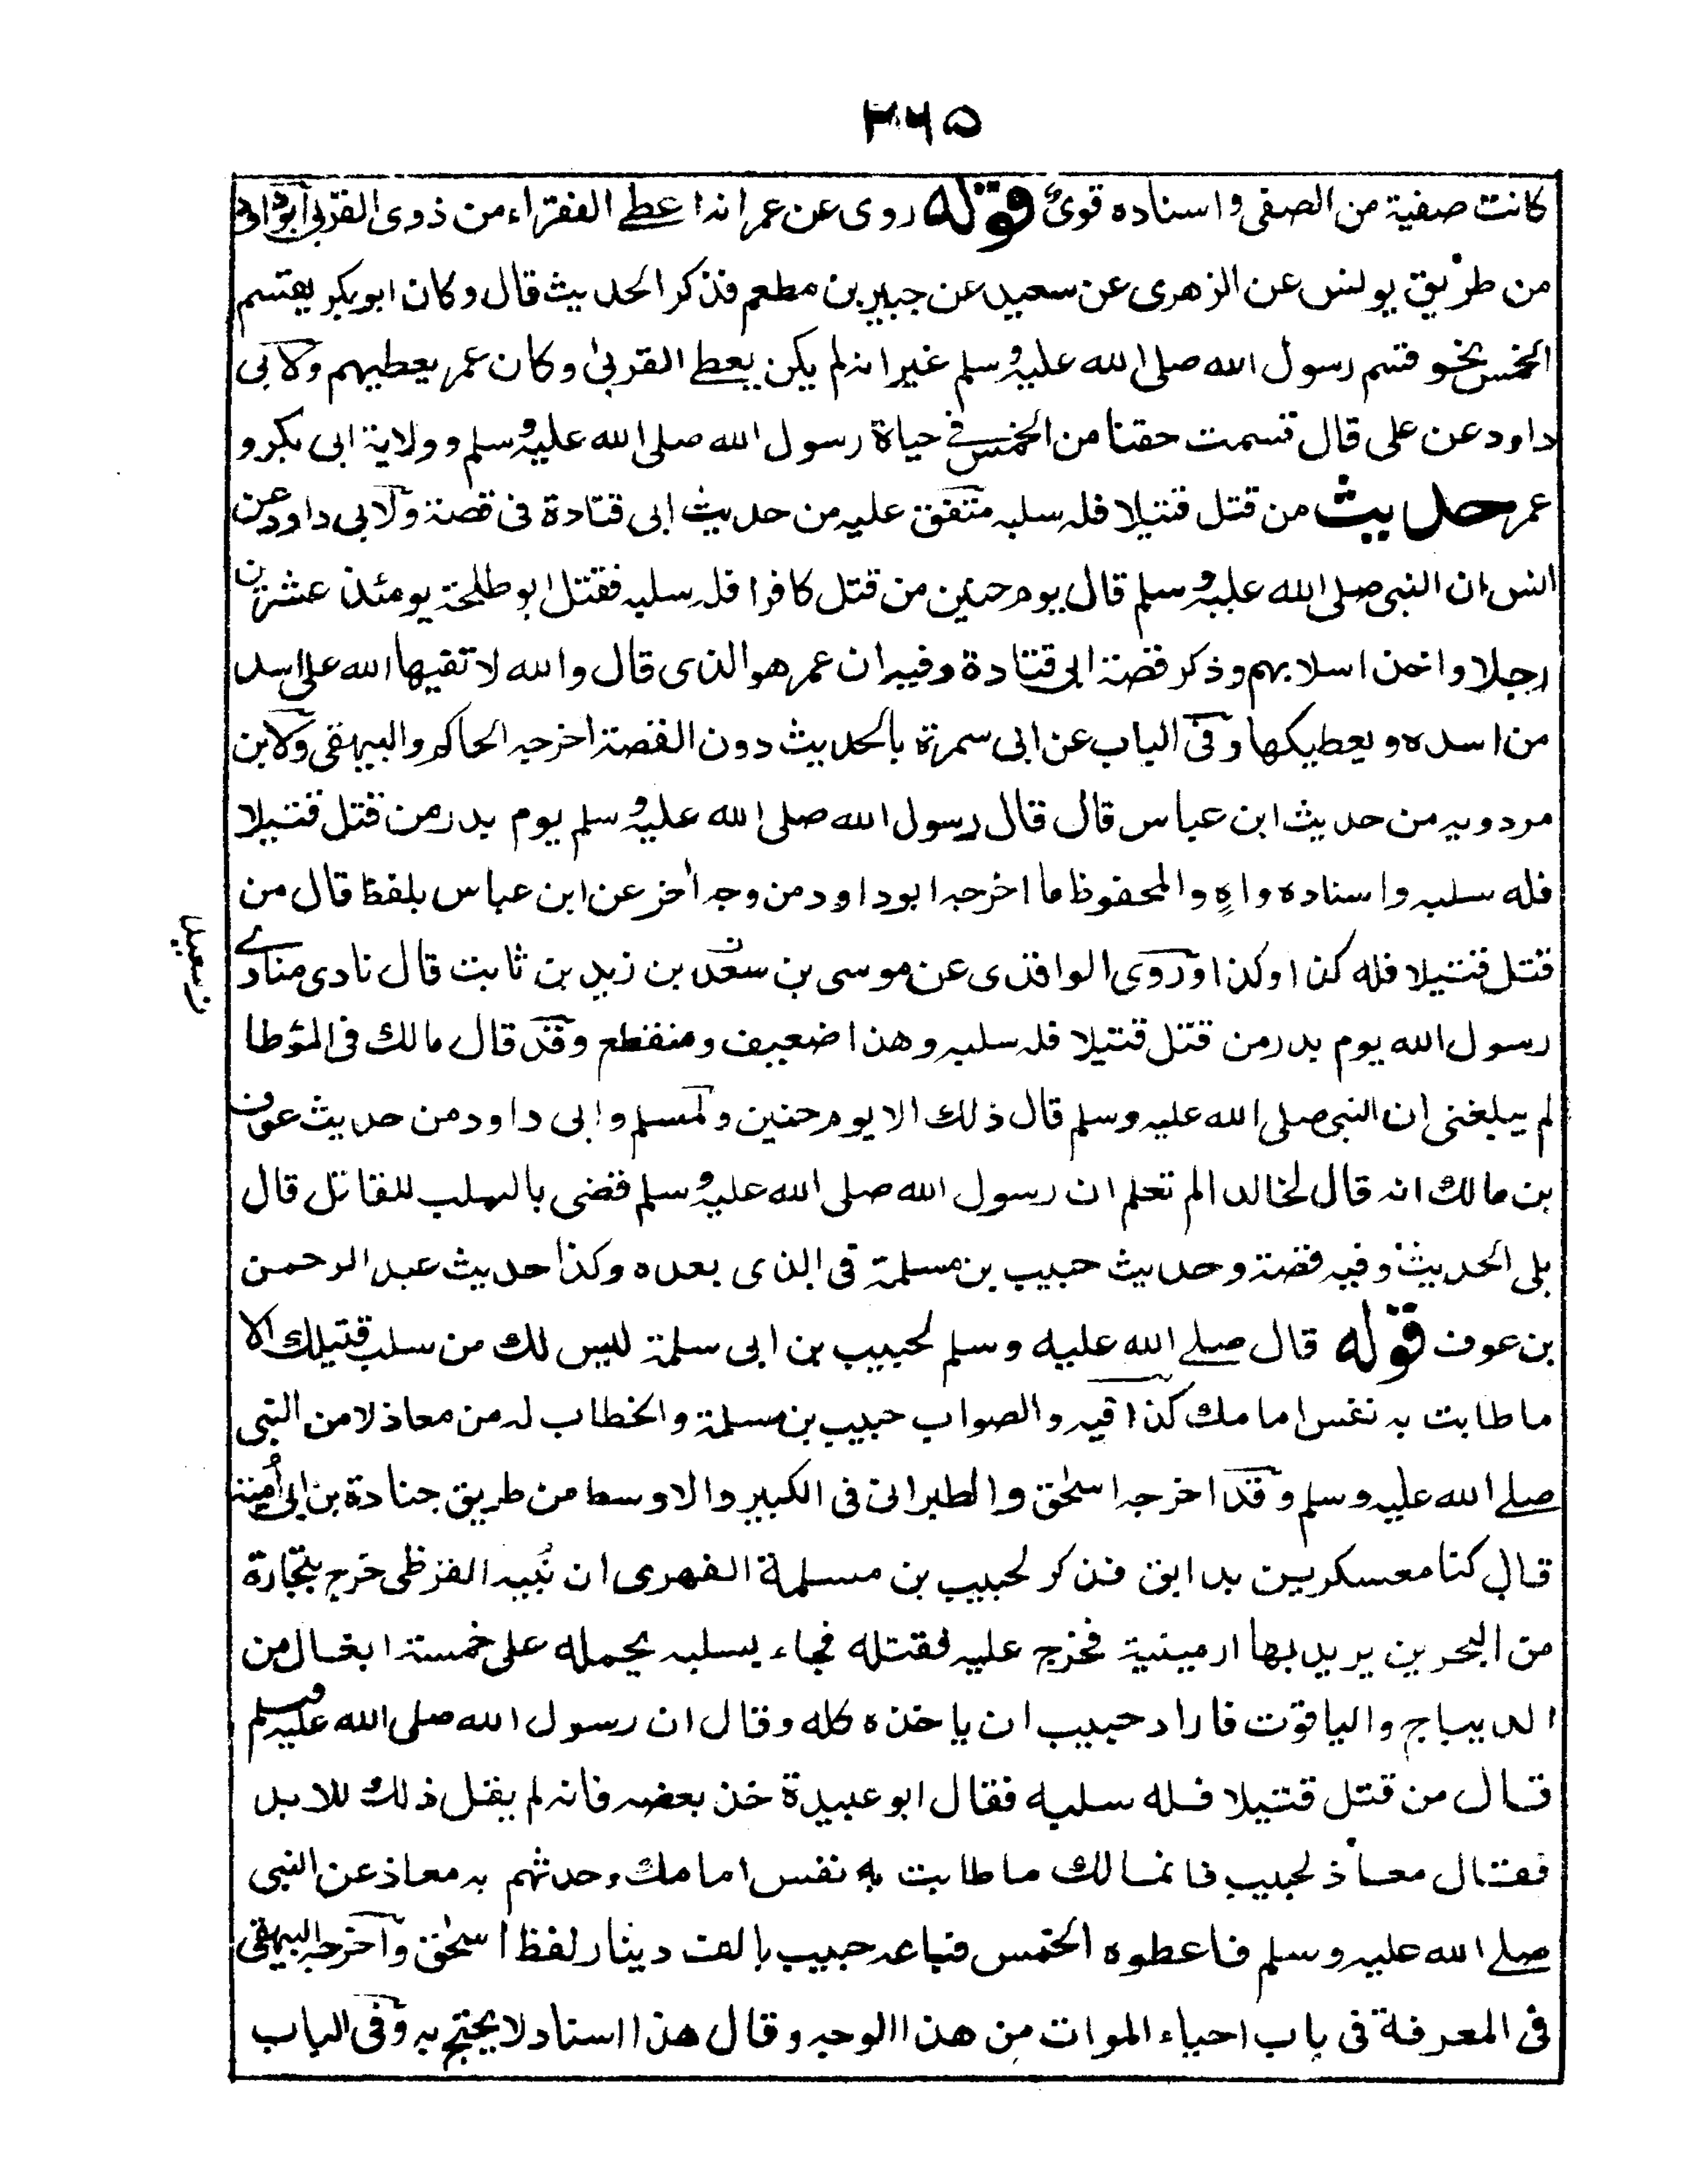 ۲۶۵
كانت صفية من الصفى واسناده قوى قوله روى عن عمر انه اعطے الفقراء من ذوى القربى ابو دا
من طريق يونس عن الزهرى عن سعيد عن جبير بن مطعم فذكر الحديث قال وكان ابو بكر يقسم
الخمس نحو قسم رسول الله صلى الله عليه وسلم غير انه لم يكن يعطے القربى وكان عمر يعطيهم ولابى
داود عن على قال قسمت حقنا من الخمس فى حياة رسول الله صلى الله عليه وسلم وولاية ابى بكر و
عمر حديث من قتل قتيلا فله سلبه متفق عليه من حديث ابى قتادة فى قصة ولابى داود عن
انس ان النبى صلى الله عليه وسلم قال يوم حنين من قتل كافرا فله سلبه فقتل ابو طلحة يومئذ عشرين
رجلا واخذ اسلابهم وذكر قصة ابى قتادة وفيه ان عمر هو الذى قال والله لا تفيها الله على اسد
من اسده ويعطيكها وفى الباب عن ابى سمرة بالحديث دون القصة اخرجه الحاكم والبيهقى ولابن
مردويه من حديث ابن عباس قال قال رسول الله صلى الله عليه وسلم يوم بدر من قتل قتيلا
فله سلبه واسناده واهٍ والمحفوظ ما اخرجه ابو داود من وجه اخر عن ابن عباس بلفظ قال من
قتل قتيلا فله كذا وكذا وروى الواقدى عن موسى بن سعد بن زيد بن ثابت قال نادى منادے
ن سعيد
رسول الله يوم بدر من قتل قتيلا فله سلبه وهذا ضعيف ومنقطع وقد قال مالك فى المؤطا
لم يبلغنى ان النبى صلى الله عليه وسلم قال ذلك الا يوم حنين ولمسلم وابى داود من حديث عوف
بن مالك انه قال لخالد الم تعلم ان رسول الله صلى الله عليه وسلم قضى بالسلب للقاتل قال
بلى الحديث وفيه قصة وحديث حبيب بن مسلمة فى الذى بعده وكذا حديث عبد الرحمن
بن عوف قوله قال صلے الله عليه وسلم لحبيب بن ابى سلمة ليس لك من سلب قتيلك الا
ما طابت به نفس امامك كذا فيه والصواب حبيب بن مسلمة والخطاب له من معاذ لا من النبى
صلے الله عليه وسلم وقد اخرجه اسحٰق والطبرانى فى الكبير والاوسط من طريق جنادة بن ابى اُمية
قال كنا معسكرين بدابق فذكر لحبيب بن مسلمة الفهرى ان نُبيه القرظى خرج بتجارة
من البحرين يريد بها ارمينية فخرج عليه فقتله فجاء بسلبه يحمله على خمسة ابغال من
الديباج والياقوت فاراد حبيب ان ياخذه كله وقال ان رسول الله صلى الله عليه وسلم
قال من قتل قتيلا فله سلبه فقال ابو عبيدة خذ بعضه فانه لم يقل ذلك للابد
فقال معاذ لحبيب فانما لك ما طابت به نفس امامك وحدثهم به معاذ عن النبى
صلے الله عليه وسلم فاعطوه الخمس فباعه حبيب بالف دينار لفظ اسحٰق واخرجه البيهقى
فى المعرفة فى باب احياء الموات من هذا الوجه وقال هذا اسناد لا يحتج به وفى الباب